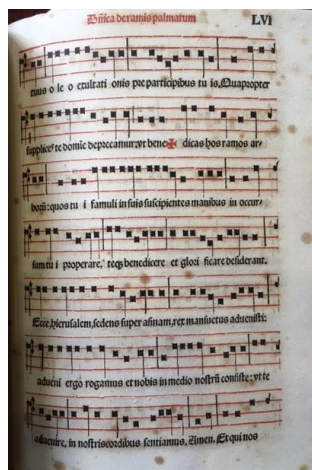 Dñica de ramis palmarum LVI
tuus o le o exultati onis pre participibus tu is. Quapropter
supplices te domie deprecamur: vt bene ✠ dicas hos ramos ar-
borũ: quos tu i famuli in suis suscipientes manibus in occur-
sum tu i properare, teqʒ benedicere et glori ficare desiderant.
Ecce, hierusalem, sedens super asinam, rex mansuetus aduenisti:
adueni ergo rogamus et nobis in medio nostrũ consiste: vt te
aduenire, in nostris cordibus sentiamus, Amen. Et qui nos